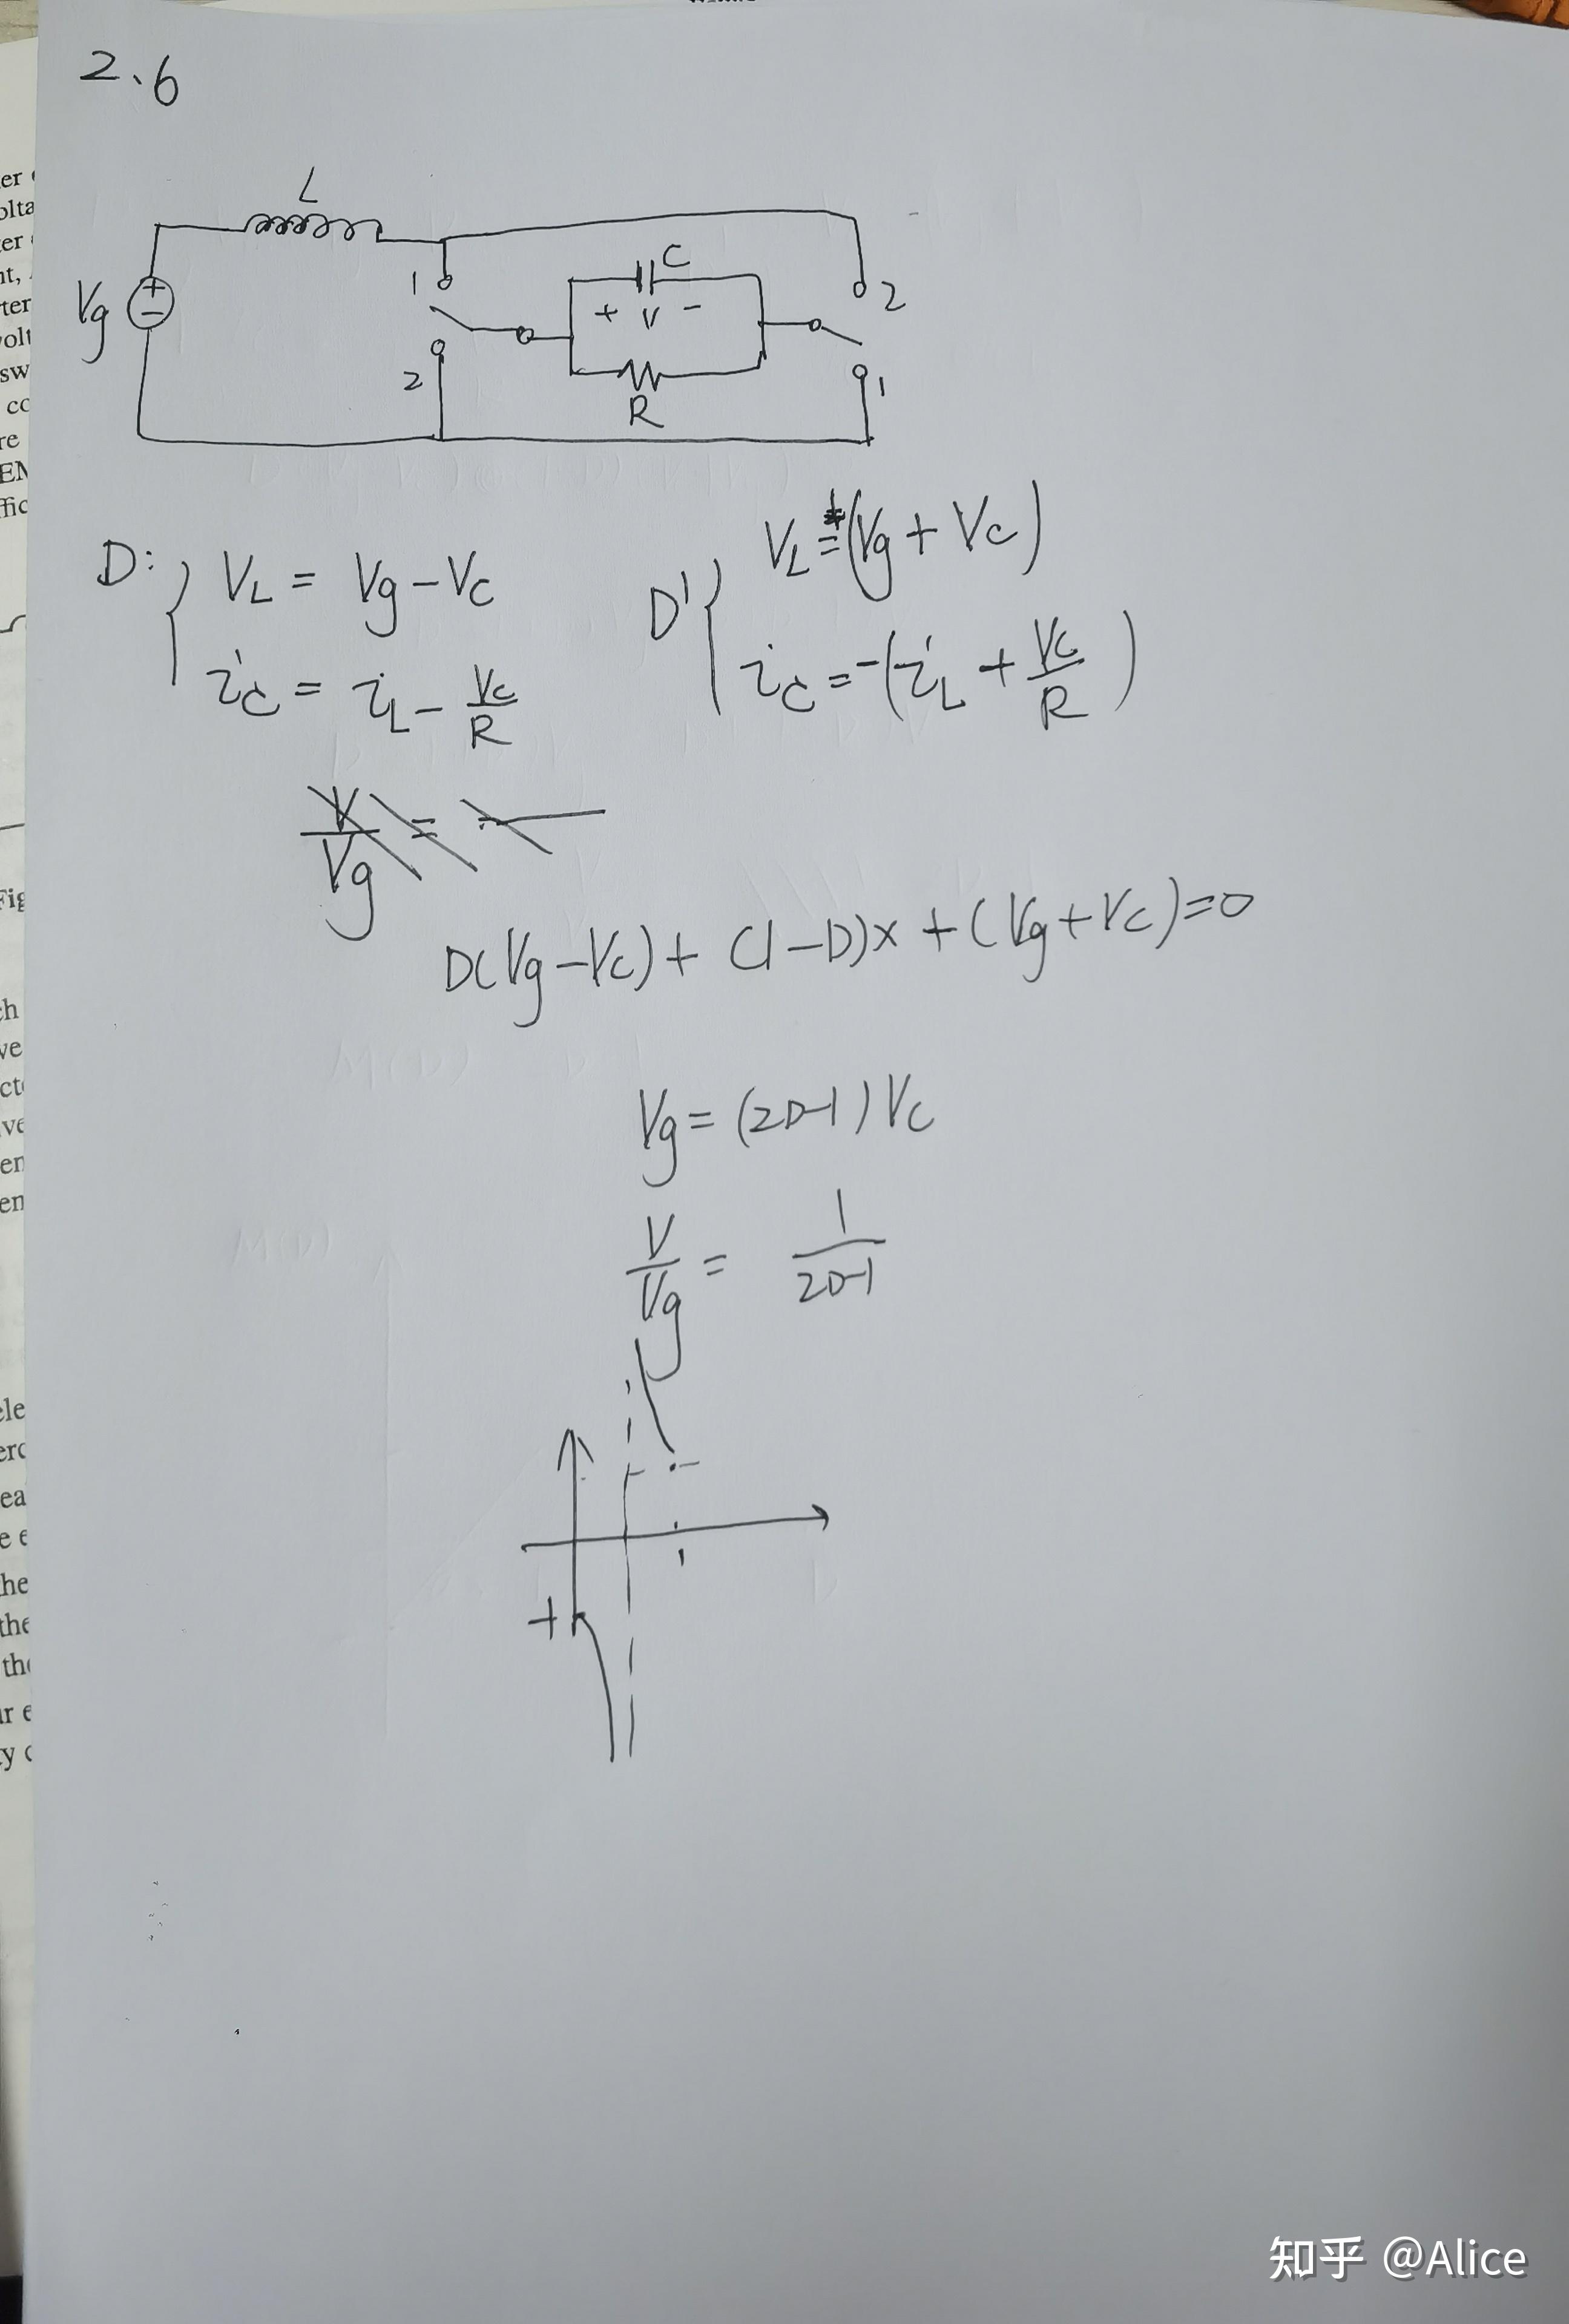 2.6
L
C
1
2
Vg
+
−
+ V −
2
R
1
D: { V_L = Vg − Vc
i_c = i_L − Vc/R
D' { V_L = +(Vg + Vc)
i_c = −(i_L + Vc/R)
V/Vg =
D(Vg − Vc) + (1 − D)x + (Vg + Vc) = 0
Vg = (2D-1) Vc
V/Vg = 1/(2D-1)
1
知乎 @Alice